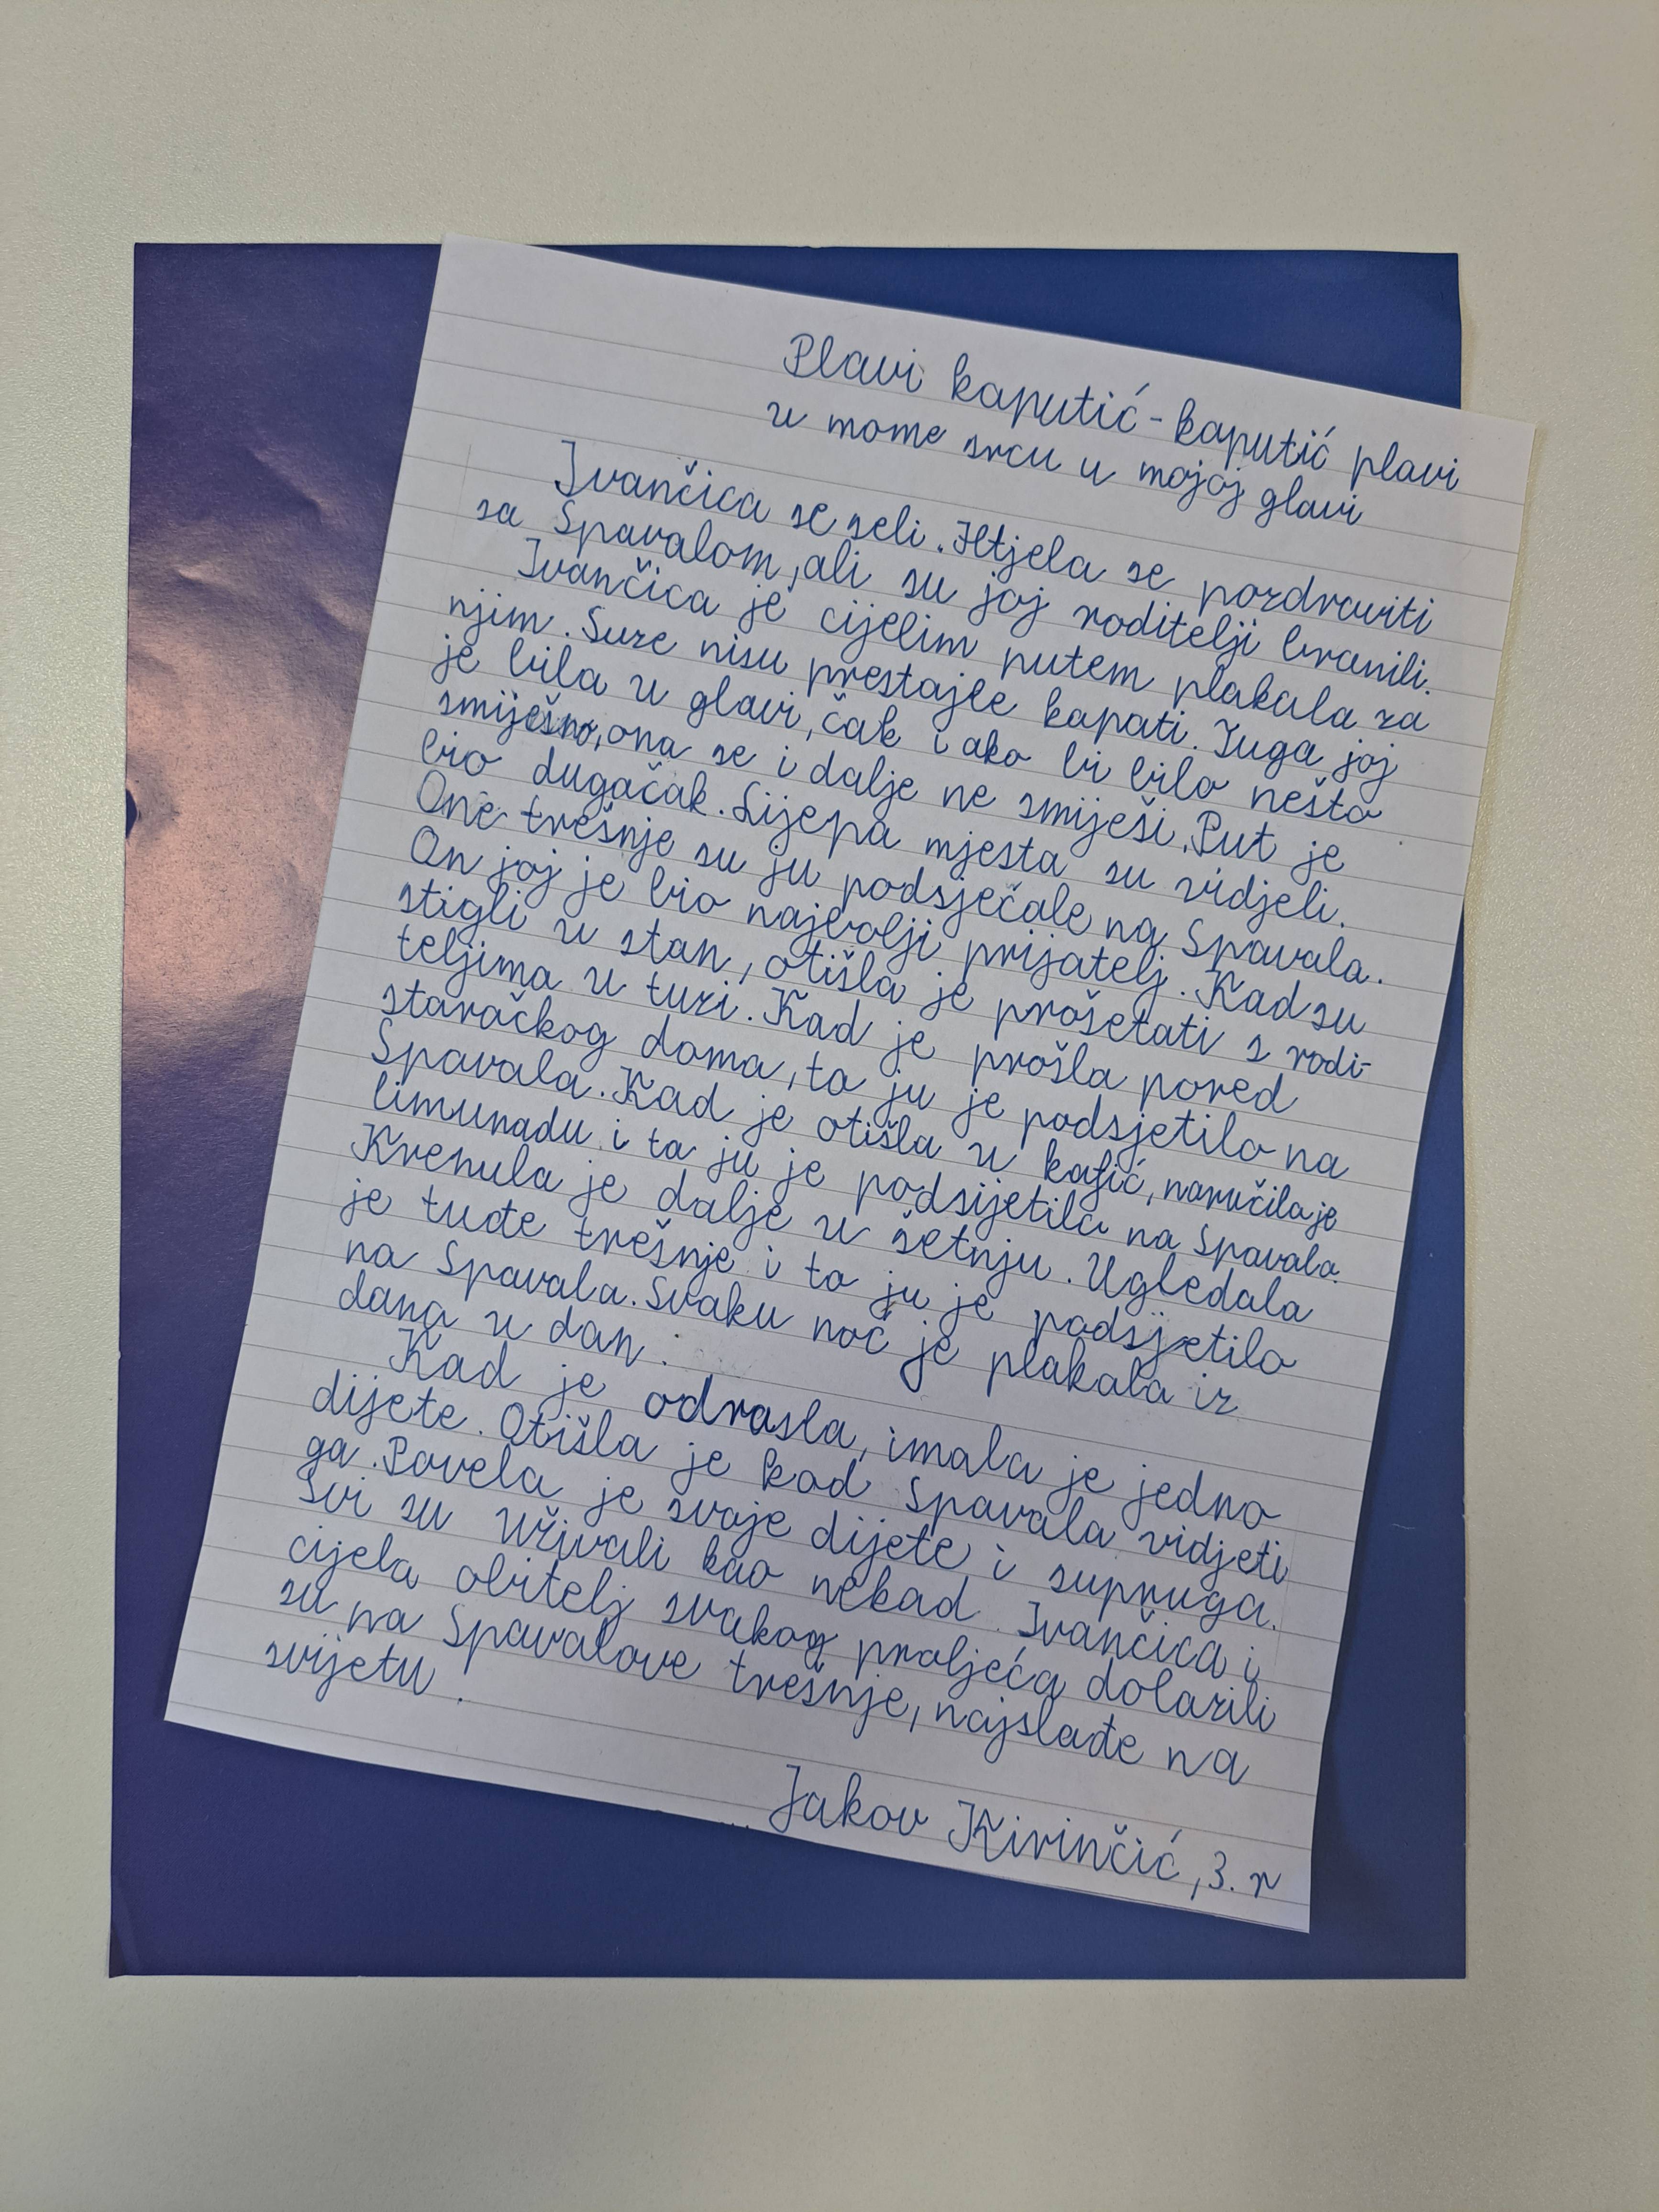 Plavi kaputić-kaputić plavi
u mome srcu u mojoj glavi
Ivančica se seli. Htjela se pozdraviti
sa Spavalom, ali su joj roditelji branili.
Ivančica je cijelim putem plakala za
njim. Suze nisu prestajle kapati. Tuga joj
je bila u glavi, čak i ako bi bilo nešto
smiješno, ona se i dalje ne smiješi. Put je
bio dugačak. Lijepa mjesta su vidjeli.
One trešnje su ju podsječale na Spavala.
On joj je bio najbolji prijatelj. Kad su
stigli u stan, otišla je prošetati s rodi-
teljima u tuzi. Kad je prošla pored
staračkog doma, to ju je podsjetilo na
Spavala. Kad je otišla u kafić, naručila je
limunadu i to ju je podsijetila na Spavala.
Krenula je dalje u šetnju. Ugledala
je tuđe trešnje i to ju je podsjetilo
na Spavala. Svaku noć je plakala iz
dana u dan.
Kad je odrasla, imala je jedno
dijete. Otišla je kod Spavala vidjeti
ga. Povela je svoje dijete i supruga.
Svi su uživali kao nekad. Ivančica i
cijela obitelj svakog proljeća dolazili
su na Spavalove trešnje, najslađe na
svijetu!
Jakov Kirinčić, 3. r